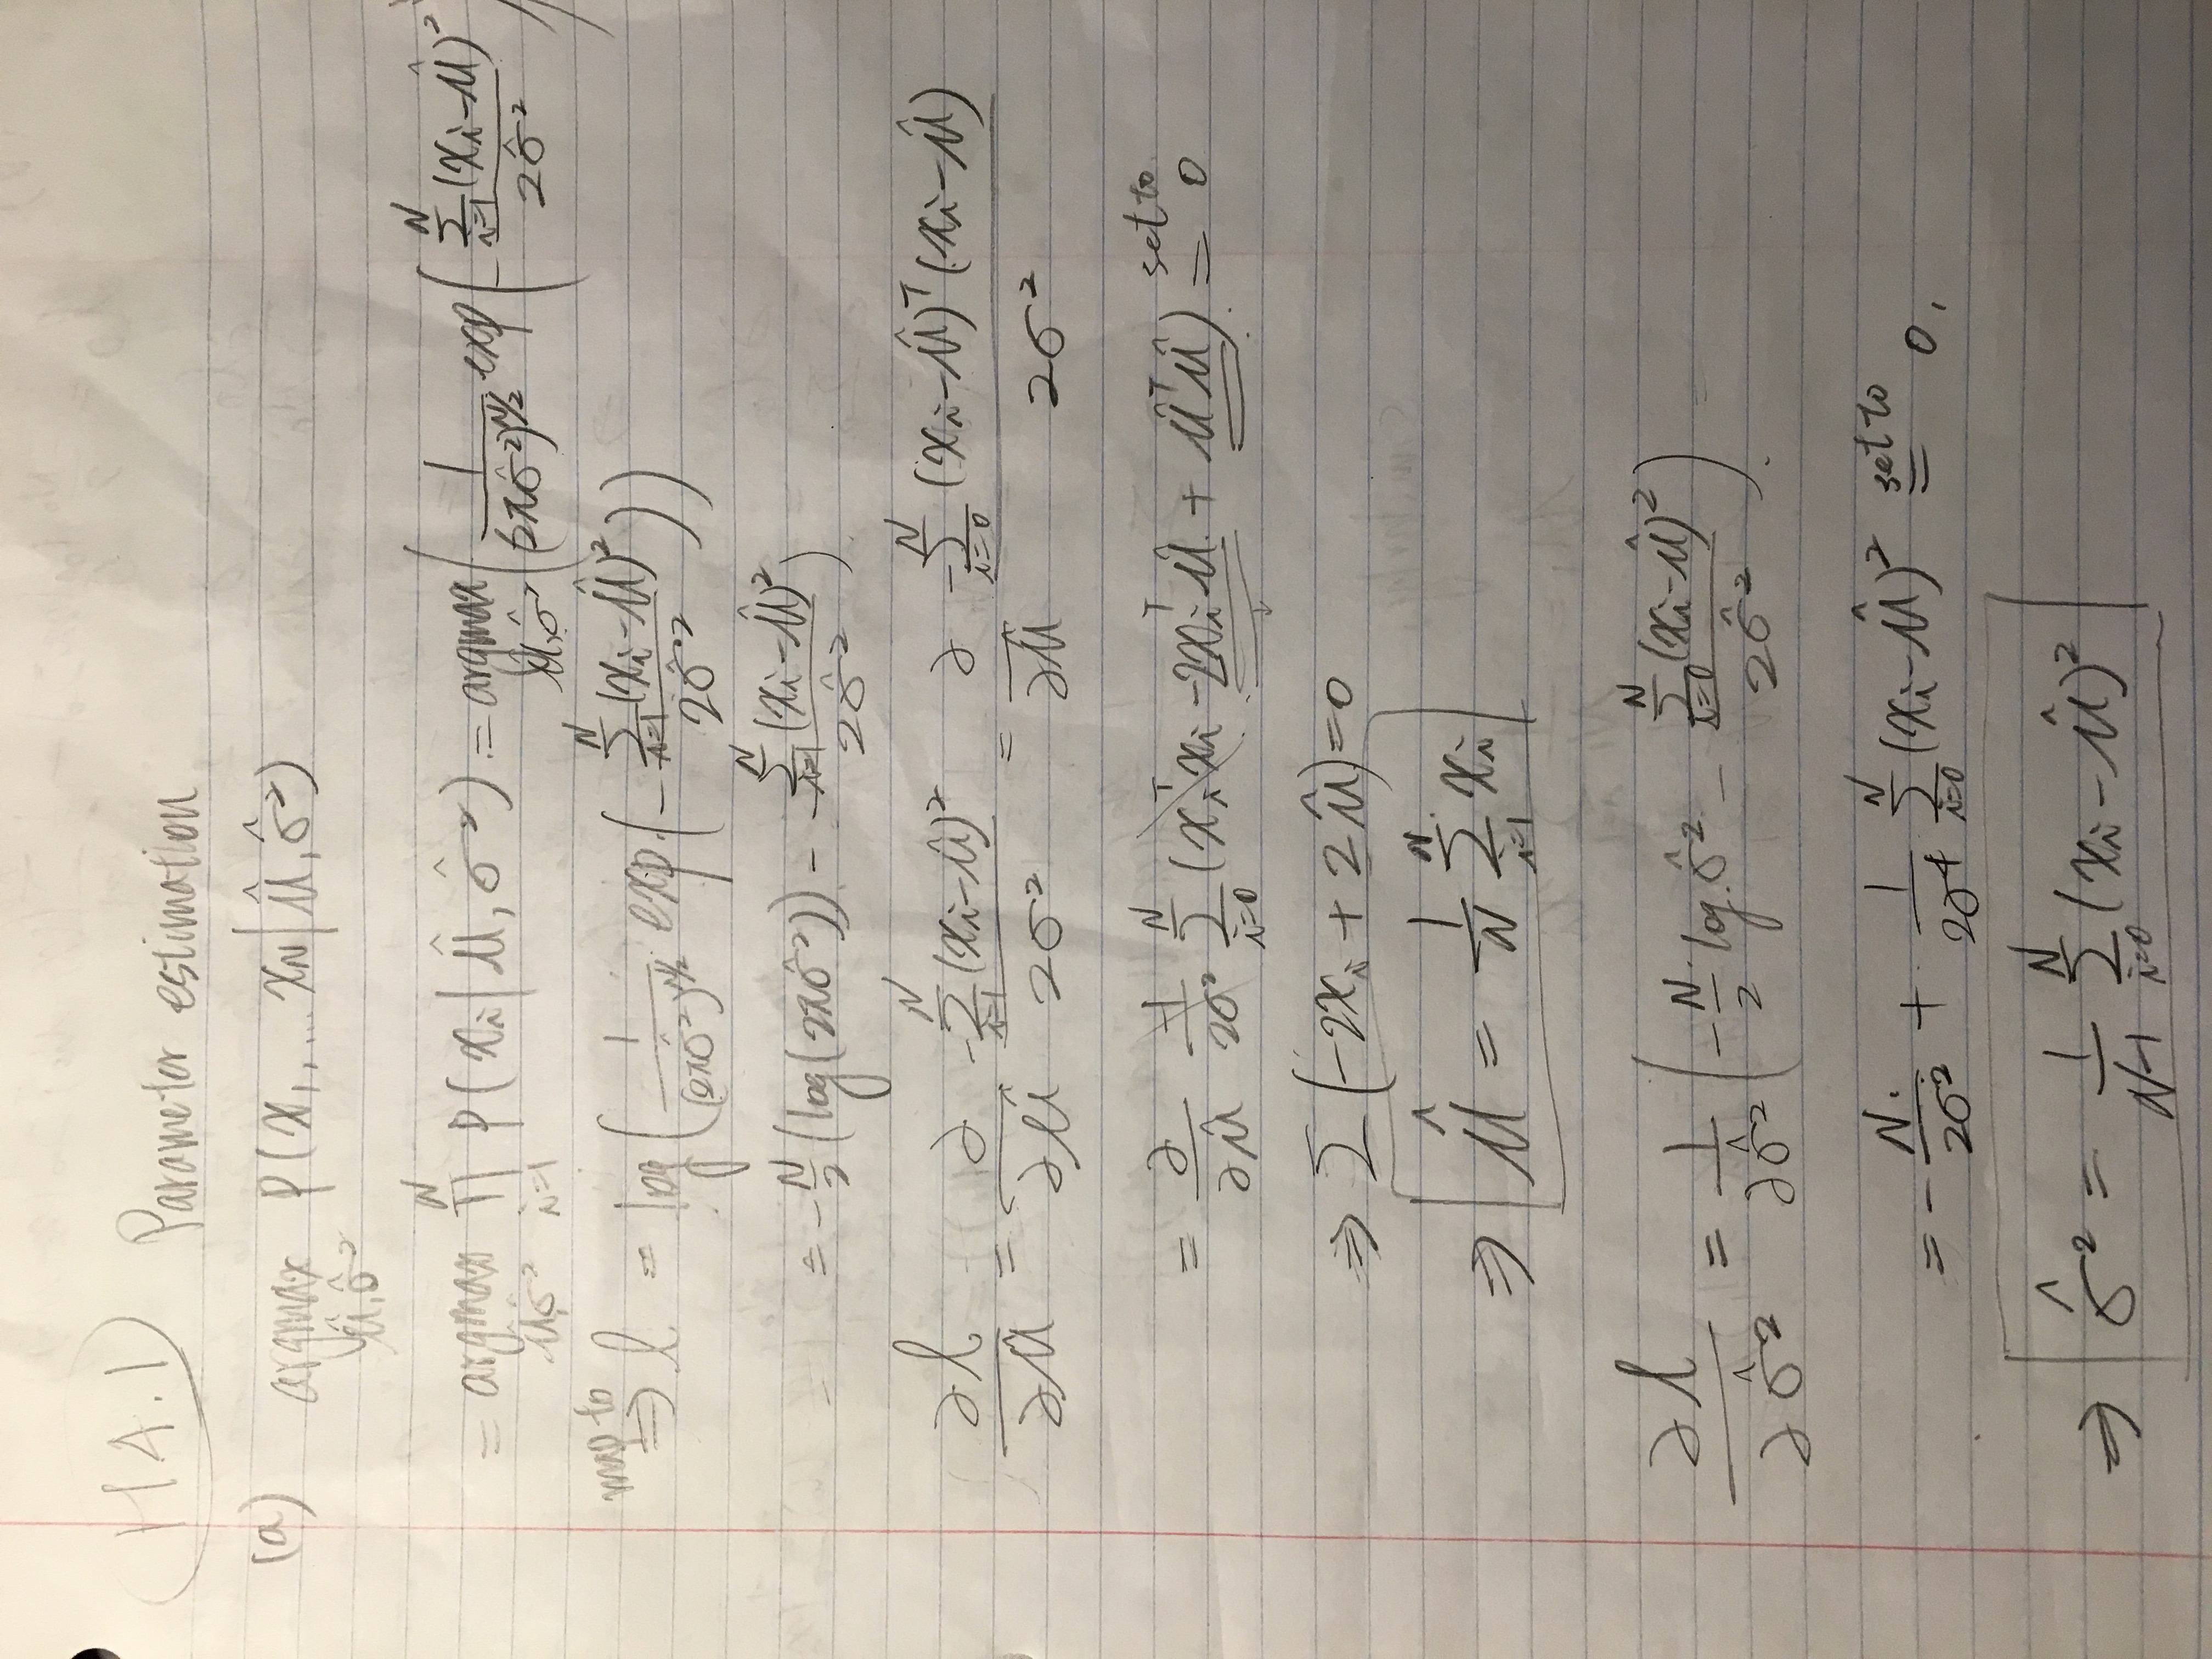 H4.1 Parameter estimation
(a) argmax_{μ̂,σ̂²} P(x₁,... x_N | μ̂, σ̂²)
= argmax_{μ̂,σ̂²} ∏_{i=1}^{N} P(x_i | μ̂, σ̂²) = argmax_{μ̂,σ̂²} ( 1/(2πσ̂²)^{N/2} exp( - ∑_{i=1}^{N} (x_i - μ̂)² / 2σ̂² ) )
map to ⇒ l = log( 1/(2πσ̂²)^{N/2} exp( - ∑_{i=1}^{N} (x_i - μ̂)² / 2σ̂² ) )
= - N/2 (log(2πσ̂²)) - ∑_{i=1}^{N} (x_i - μ̂)² / 2σ̂² )
∂l/∂μ̂ = ∂/∂μ̂ -∑_{i=1}^{N} (x_i - μ̂)² / 2σ² = ∂/∂μ̂ -∑_{i=0}^{N} (x_i - μ̂)ᵀ (x_i - μ̂) / 2σ²
= ∂/∂μ̂ -1/2σ² ∑_{i=0}^{N} (x_iᵀ x_i - 2x_iᵀ μ̂ + μ̂ᵀ μ̂) = set to 0
⇒ ∑ (-2x_i + 2μ̂) = 0
⇒ μ̂ = 1/N ∑_{i=1}^{N} x_i
∂l/∂σ̂² = 1/∂σ̂² ( - N/2 log σ̂² - ∑_{i=0}^{N} (x_i - μ̂)² / 2σ̂² )
= - N/2σ² + 1/2σ⁴ ∑_{i=0}^{N} (x_i - μ̂)² = set to 0,
⇒ σ̂² = 1/N-1 ∑_{i=0}^{N} (x_i - μ̂)²